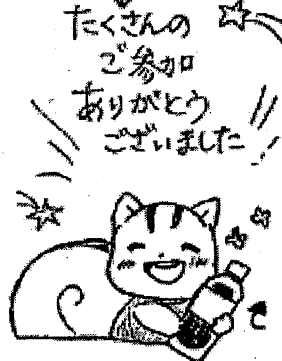 たくさんの
ご参加
ありがとう
ございました